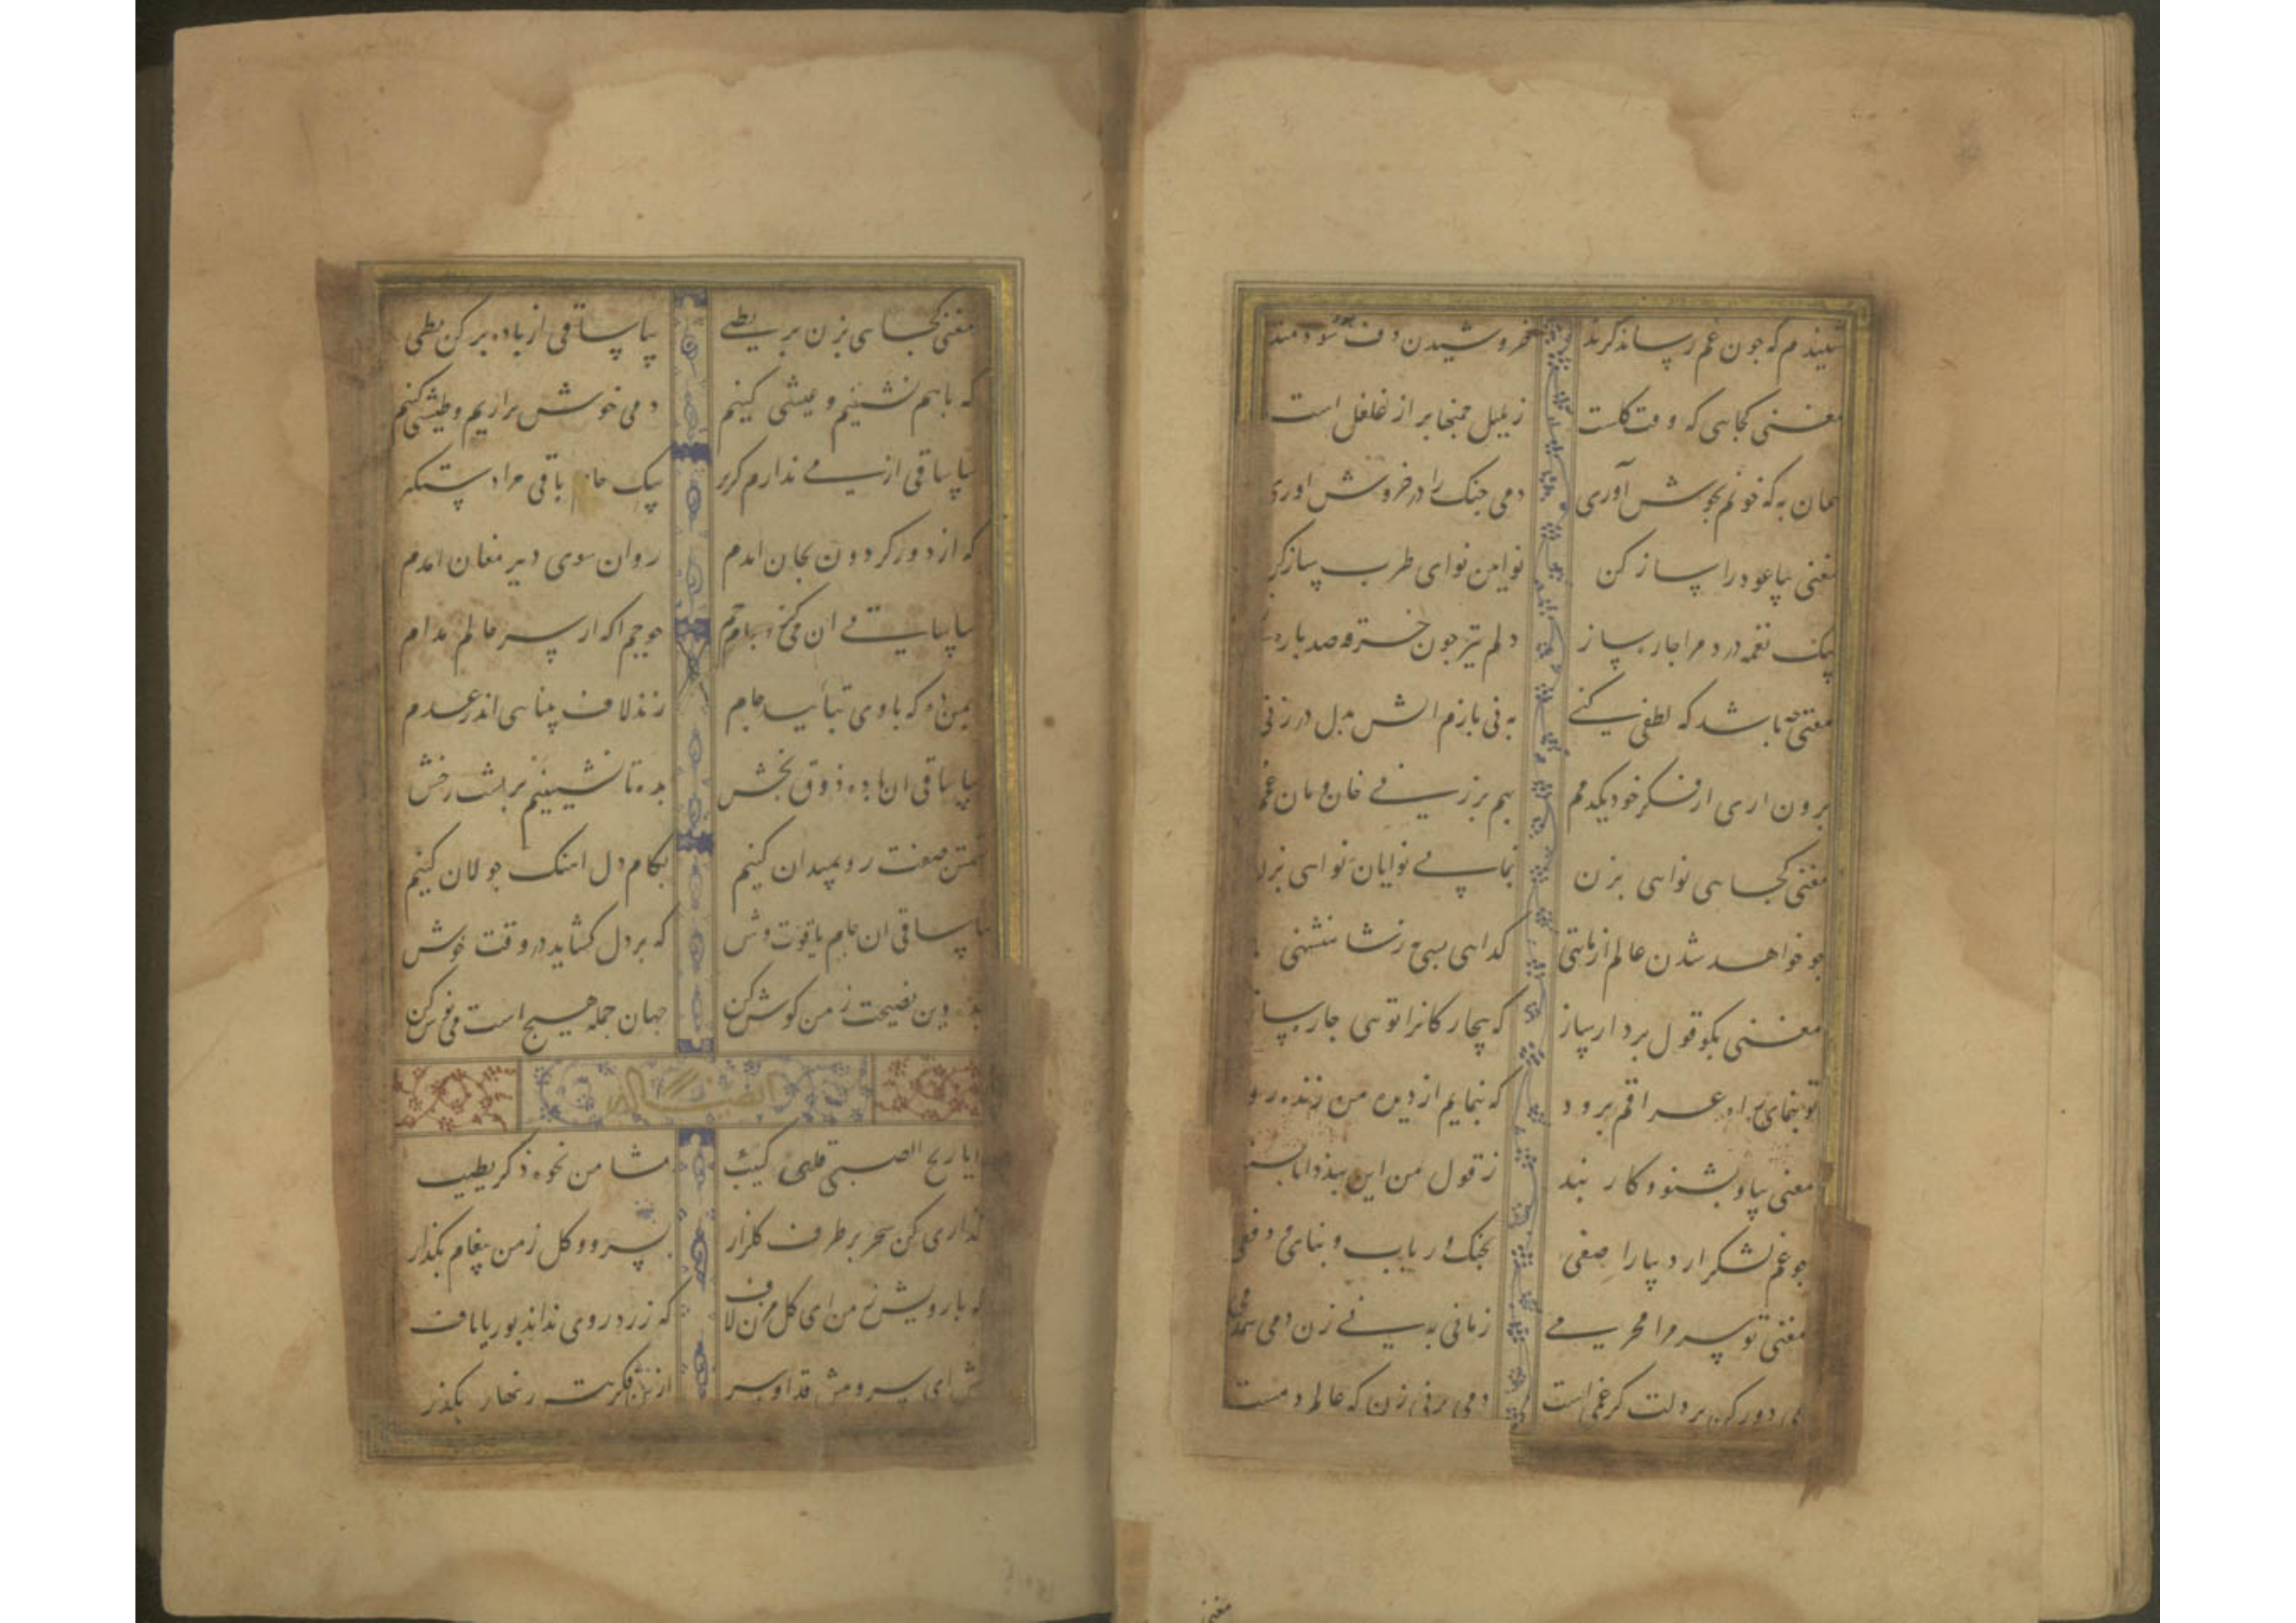 شنیدم که چون غم رساند گزند خروشیدن دف بود سودمند
مغنی کجایی که وقت گلست ز بلبل چمنها پر از غلغل است
همان به که خونم بجوش آوری دمی چنک را در خروش اوری
مغنی بیا عود را ساز کن نوایین نوای طرب ساز کن
بیک نغمه درد مرا چاره ساز دلم نیز چون خرقه صد پاره
مغنی چه باشد که لطفی کنی به نی بازم اتش بدل در زنی
برون اری از فکر خود یکدمم بهم بر زنی خان و مان غمم
مغنی کجایی نوایی بزن بیا بی نوایان نوایی بزن
چو خواهد شدن عالم از ما تهی گدایی بسی به ز شاهنشهی
مغنی بگو قول بردار ساز که بیچارگانرا تویی چاره ساز
تو بنمای راه عراقم برود که بنمایم از دیده من زنده رود
مغنی بیا و بشنو و کار بند ز قول من این پند دانا پسند
چو غم لشکر ارد بیارا صفی بچنک و رباب و بنای و دفی
مغنی تو سر مرا محرمی زمانی به نی زن دمی همدمی
غمی دور کن بر دلت گر غمی است دمی بر نی زن که عالم دمست
مغنی
مغنی کجایی بزن بربطی بیا ساقی از باده پر کن بطی
که باهم نشینیم و عیشی کنیم دمی خوش براریم و طیشی کنیم
بیا ساقی از می ندارم گزیر بیک جام باقی مرا دستگیر
که از دور گردون بجان امدم روان سوی دیر مغان امدم
بیا ساقی ان می کزو جام جم زند لاف بینایی اندر عدم
بمن ده که باوی بتایید جام چو جم اگه از سر عالم مدام
بیا ساقی ان باده ذوق بخش بده تا نشینیم بر پشت رخش
تهمتن صفت رو بمیدان کنیم بکام دل اهنک جولان کنیم
بیا ساقی ان جام یاقوت وش که بر دل گشاید در وقت خوش
بده وین نصیحت ز من گوش کن جهان جمله هیچ است می نوش کن
ایا ریح الصبی قلبی کئیب مشامی من نحوه ذکر یطیب
گذاری کن سحر بر طرف گلزار بسرو و گل ز من پیغام بگذار
که با رویش مزن ای گل لاف که زردروی نداند بوریاباف
ای سرو پیش قد او سر از زنهار بگذر